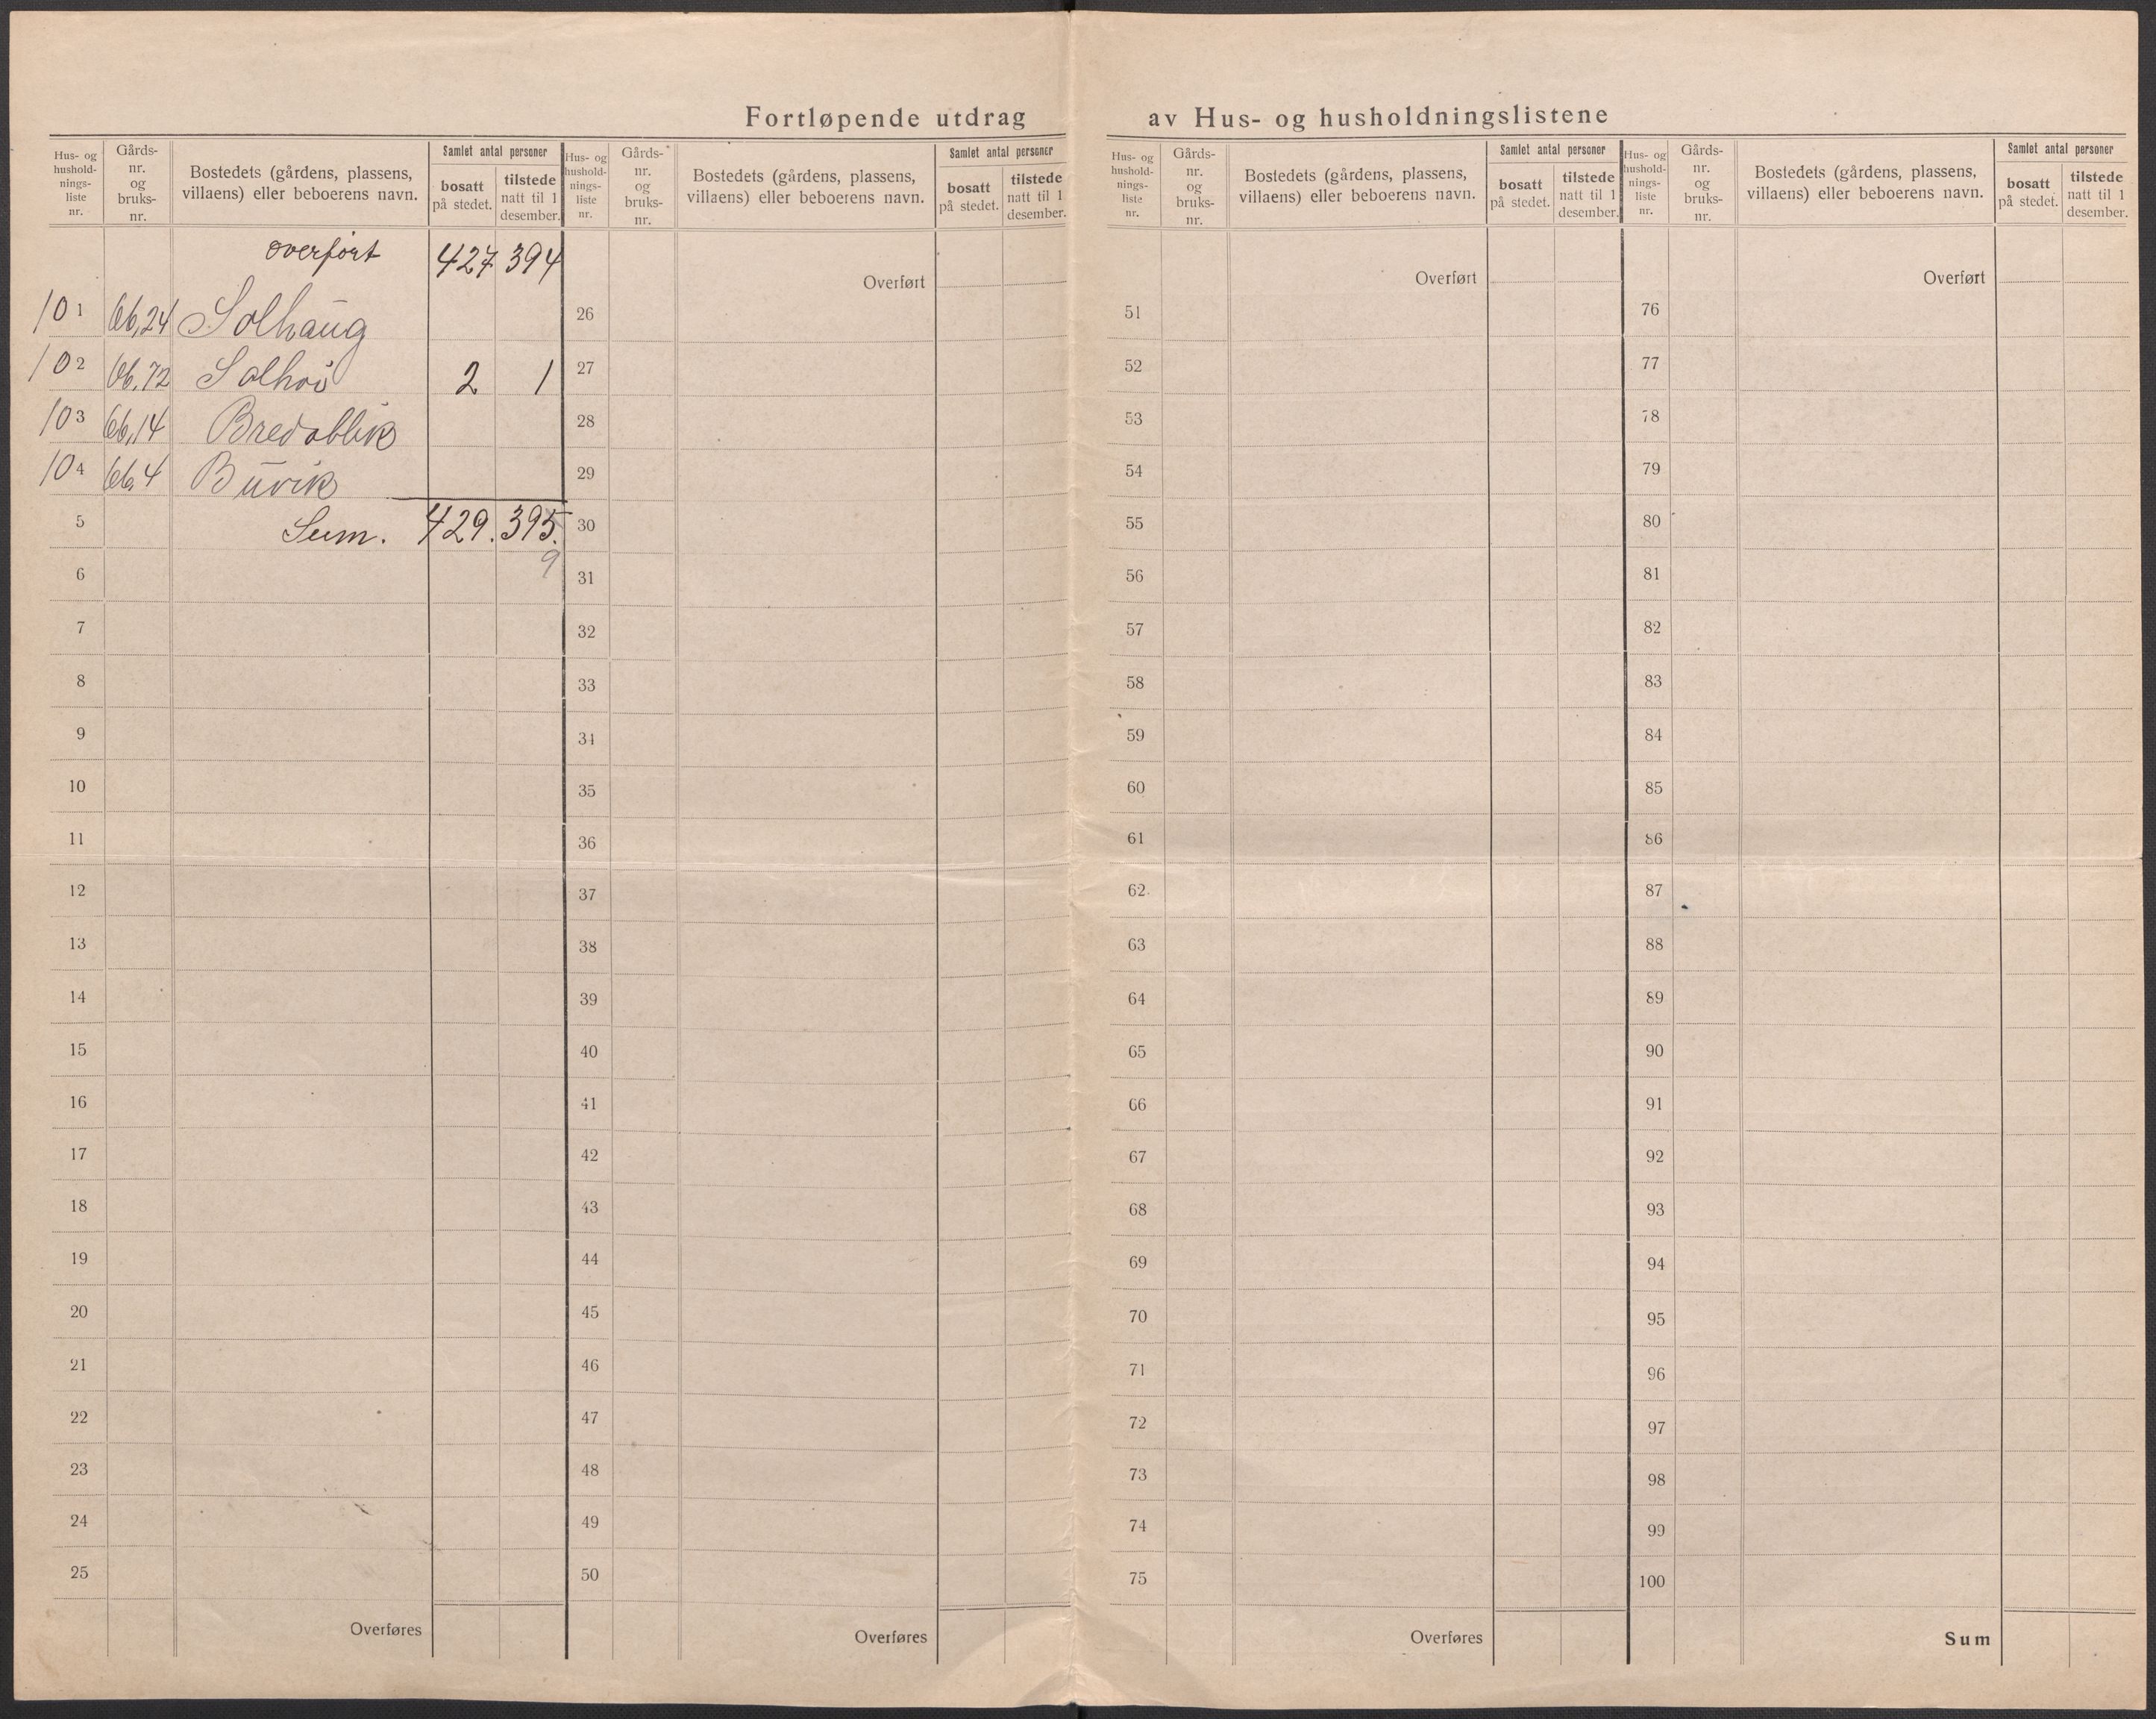 Fortløpende utdrag av Hus- og husholdningslistene
Hus- og
hushold-
nings-
liste
nr.
Gårds-
nr.
og
bruks-
nr.
Bostedets (gårdens, plassens,
villaens) eller beboerens navn.
Samlet antal personer
bosatt
på stedet.
tilstede
natt til 1
desember.
overført 427 394
101 66,24 Solhaug
102 66,72 Solhoi 2 1
103 66,14 Bredablik
104 66,4 Buvik
5 Sum. 429. 395.
9
6
7
8
9
10
11
12
13
14
15
16
17
18
19
20
21
22
23
24
25
Overføres
Hus- og
hushold-
nings-
liste
nr.
Gårds-
nr.
og
bruks-
nr.
Bostedets (gårdens, plassens,
villaens) eller beboerens navn.
Samlet antal personer
bosatt
på stedet.
tilstede
natt til 1
desember.
Overført
26
27
28
29
30
31
32
33
34
35
36
37
38
39
40
41
42
43
44
45
46
47
48
49
50
Overføres
Hus- og
hushold-
nings-
liste
nr.
Gårds-
nr.
og
bruks-
nr.
Bostedets (gårdens, plassens,
villaens) eller beboerens navn.
Samlet antal personer
bosatt
på stedet.
tilstede
natt til 1
desember.
Overført
51
52
53
54
55
56
57
58
59
60
61
62
63
64
65
66
67
68
69
70
71
72
73
74
75
Overføres
Hus- og
hushold-
nings-
liste
nr.
Gårds-
nr.
og
bruks-
nr.
Bostedets (gårdens, plassens,
villaens) eller beboerens navn.
Samlet antal personer
bosatt
på stedet.
tilstede
natt til 1
desember.
Overført
76
77
78
79
80
81
82
83
84
85
86
87
88
89
90
91
92
93
94
95
96
97
98
99
100
Sum